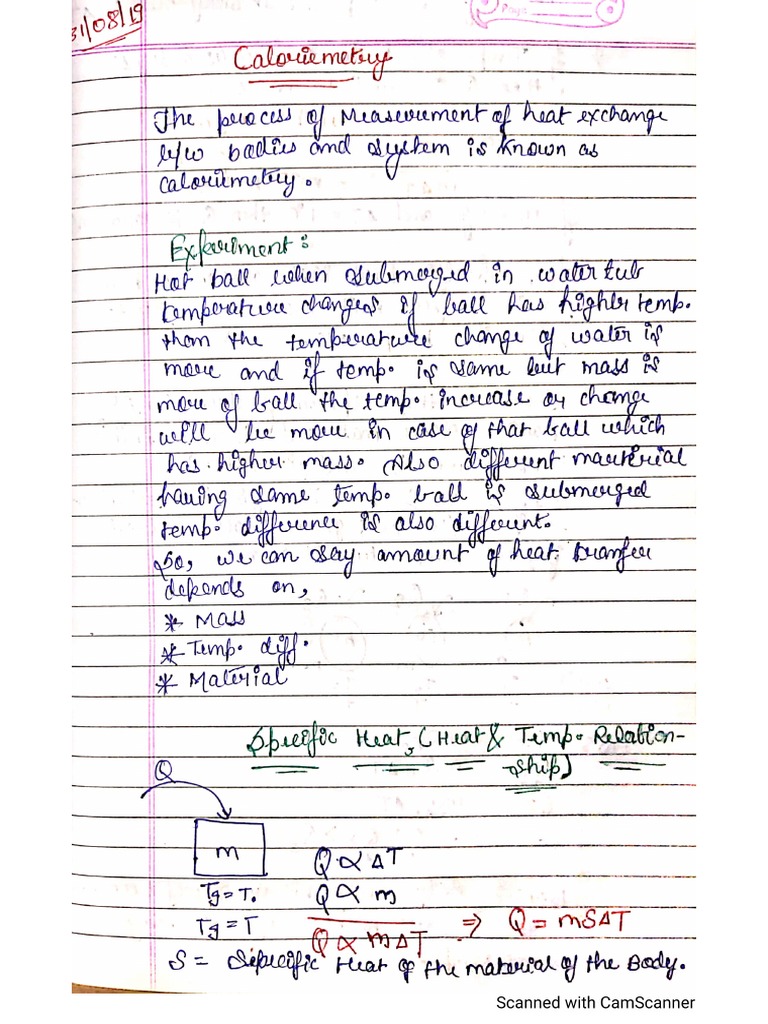 31/08/19
Caloriemetry
The process of Measurement of heat exchange
b/w bodies and system is known as
caloriemetry.
Experiment:
Hot ball when submerged in water tub
temperature changes if ball has higher temp.
than the temperature change of water is
more and if temp. is same but mass is
more of ball the temp. increase or change
will be more in case of that ball which
has higher mass. Also different material
having same temp. ball is submerged
temp. difference is also different.
So, we can say amount of heat transfer
depends on,
* Mass
* Temp. diff.
* Material
Specific Heat, (Heat & Temp. Relation-
-ship)
Q
m
Q ∝ ΔT
Tg = T₀ Q ∝ m
Tg = T Q ∝ mΔT ⇒ Q = mSΔT
S = Specific Heat of the material of the Body.
Scanned with CamScanner